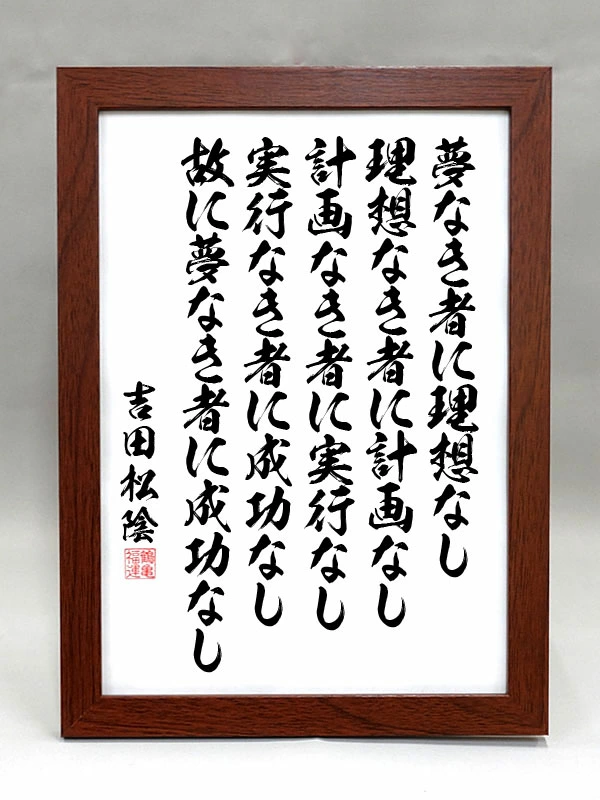 夢なき者に理想なし
理想なき者に計画なし
計画なき者に実行なし
実行なき者に成功なし
故に夢なき者に成功なし
吉田松陰
鶴亀
福運